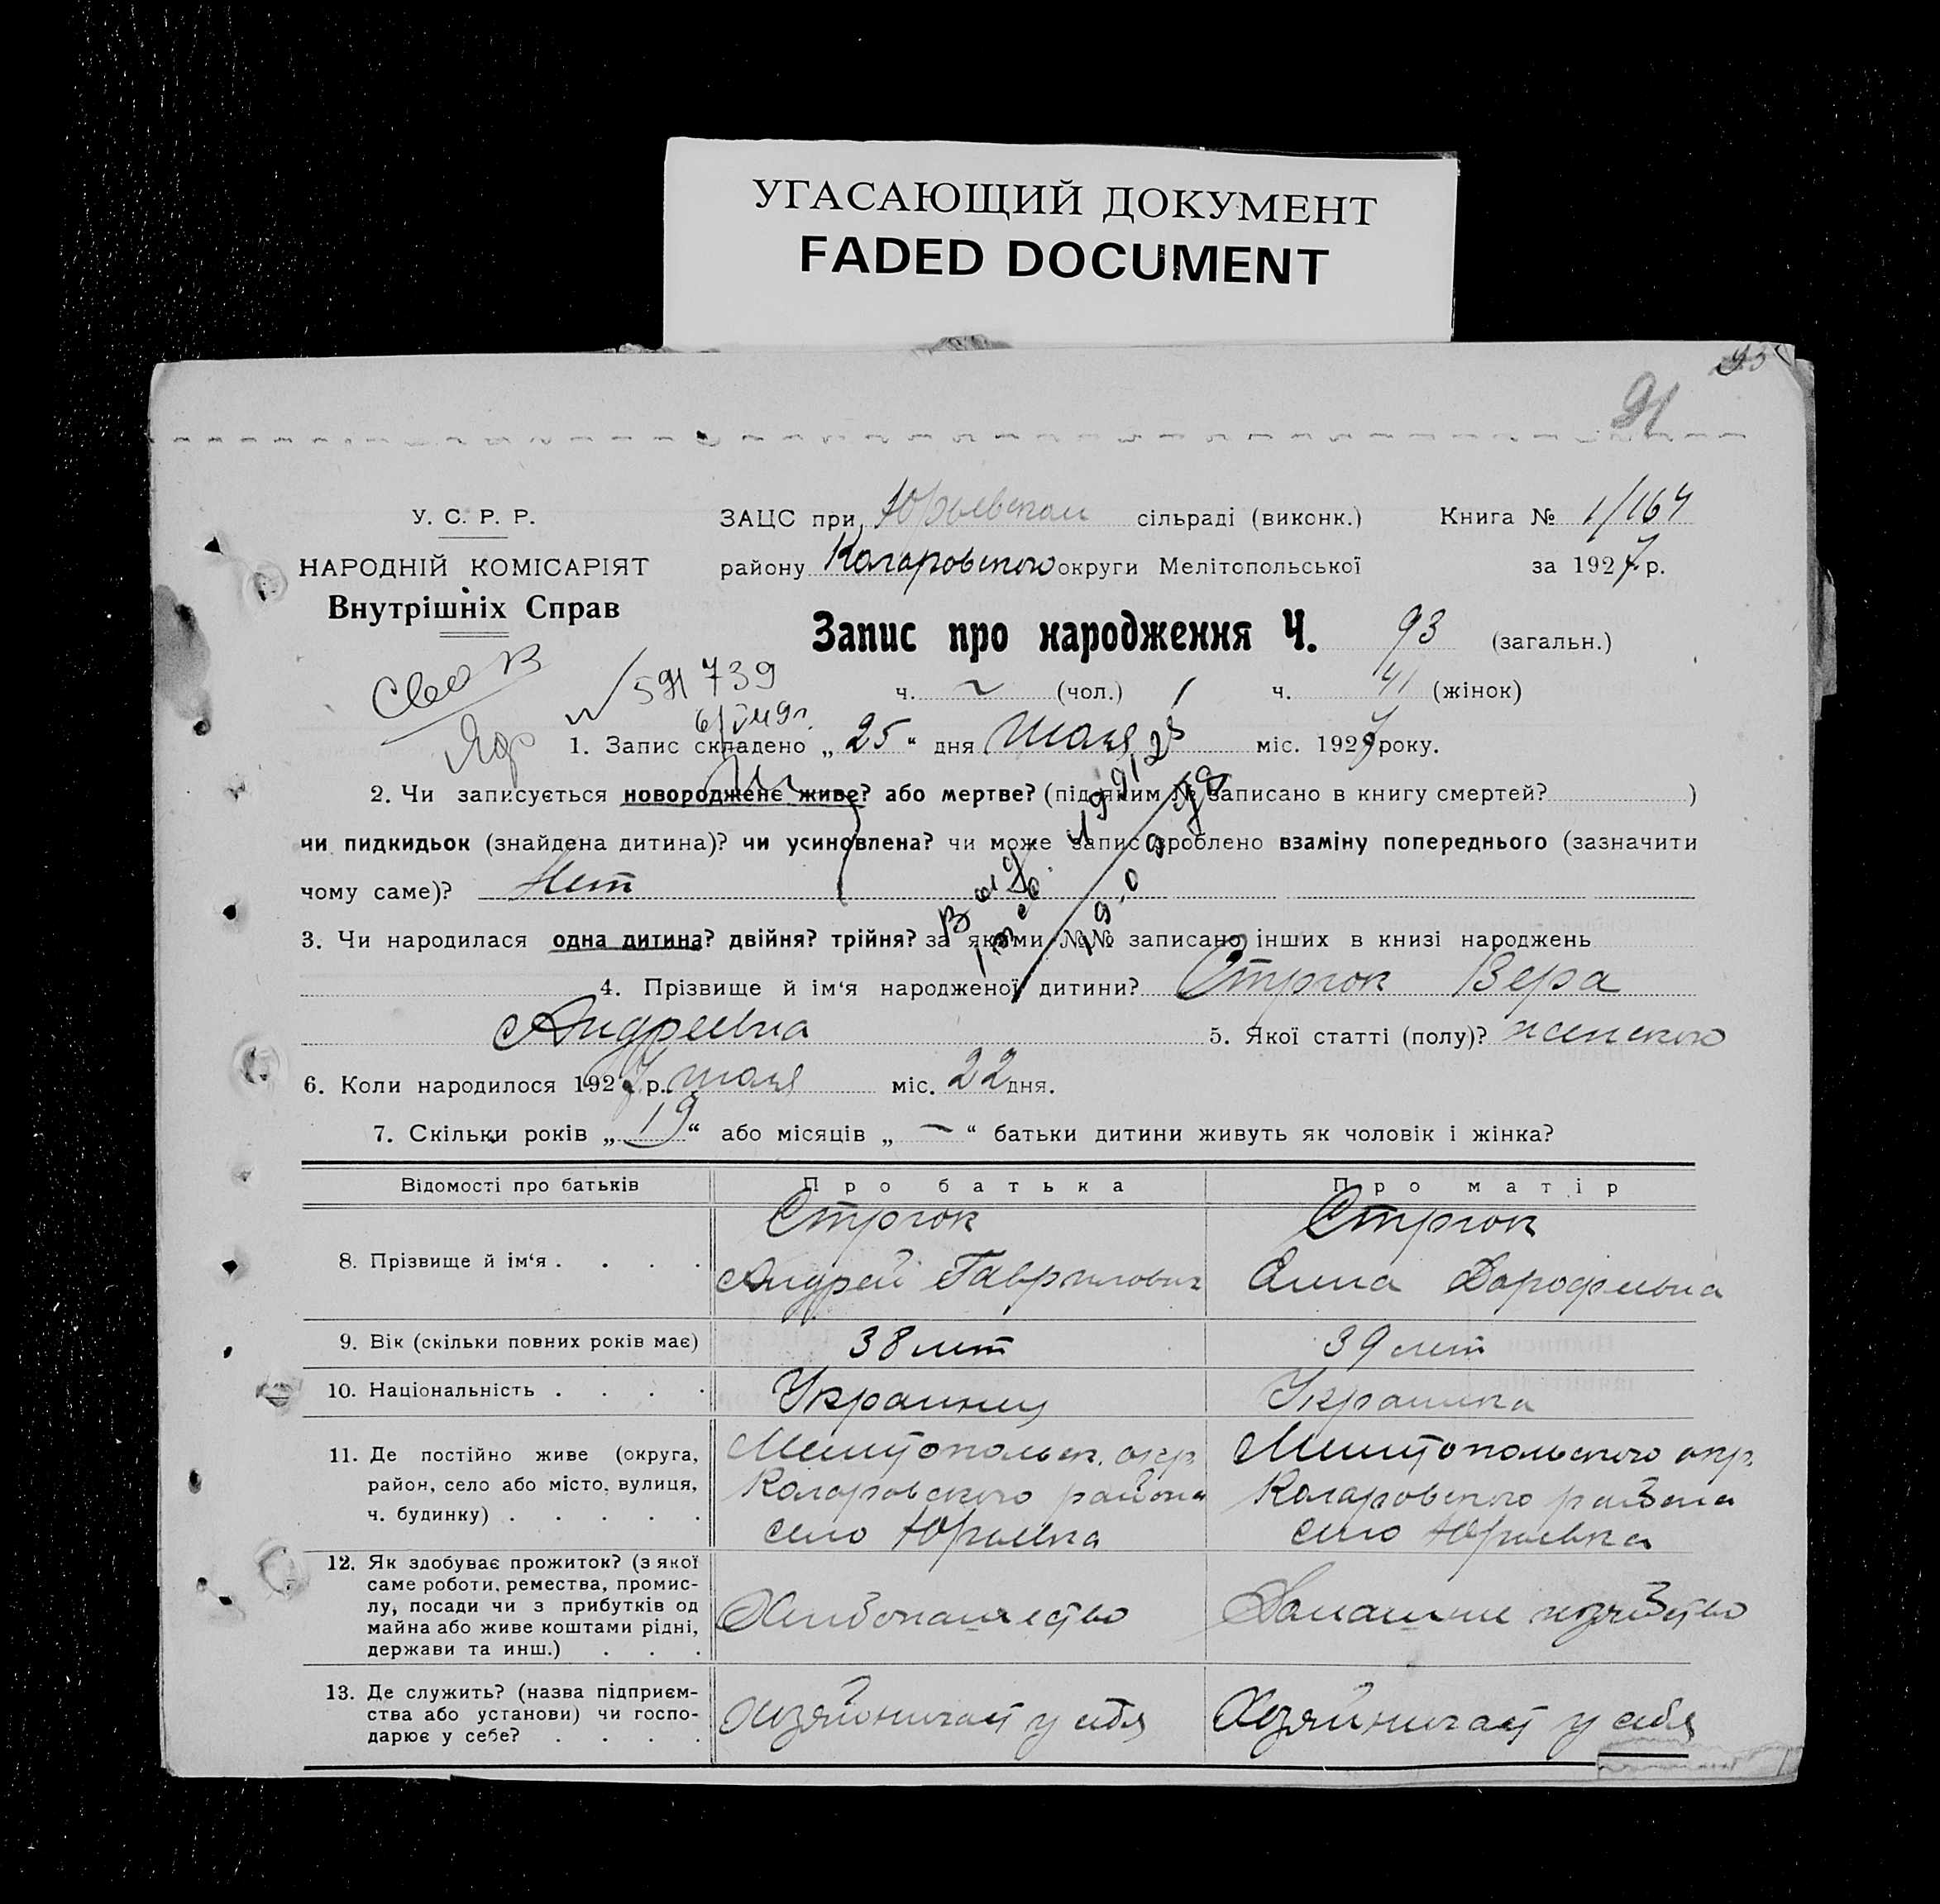 УГАСАЮЩИЙ ДОКУМЕНТ
FADED DOCUMENT
93
91
У. С. Р. Р.
НАРОДНІЙ КОМІСАРІЯТ
Внутрішніх Справ
ЗАЦС при Юрьевском сільраді (виконк.) Книга № 1/164
району Коларовского округи Мелітопольської за 1927 р.
Запис про народження Ч. 93 (загальн.)
591739
ч. ~ (чол.) ч. 41 (жінок)
1. Запис складено „25“ дня Июля міс. 1927 року.
2. Чи записується новороджене живе? або мертве? (під яким № записано в книгу смертей? )
чи пидкидьок (знайдена дитина)? чи усиновлена? чи може запис зроблено взаміну попереднього (зазначити
чому саме)? Нет
3. Чи народилася одна дитина? двійня? трійня? за якими №№ записано інших в книзі народжень
4. Прізвище й ім‘я народженої дитини? Стрюк Вера
Андреевна 5. Якої статті (полу)? женского
6. Коли народилося 1927 р. июля міс. 22 дня.
7. Скільки років „19“ або місяців „—“ батьки дитини живуть як чоловік і жінка?
Відомості про батьків Про батька Про матір
8. Прізвище й ім‘я . . . . Стрюк Андрей Гаврилович Стрюк Анна Дорофеевна
9. Вік (скільки повних років має) 38 лет 39 лет
10. Національність . . . . Украинец Украинка
11. Де постійно живе (округа,
район, село або місто, вулиця,
ч. будинку) . . . . .
Мелитопольск. окр.
Коларовского района
село Юрьевка
Мелитопольского окр.
Коларовского района
село Юрьевка
12. Як здобуває прожиток? (з якої
саме роботи, ремества, промис-
лу, посади чи з прибутків од
майна або живе коштами рідні,
держави та инш.) . . .
Хлебопашество
Домашнее хозяйство
13. Де служить? (назва підприєм-
ства або установи) чи госпо-
дарює у себе? . . . .
Хозяйничает у себя
Хозяйничает у себя